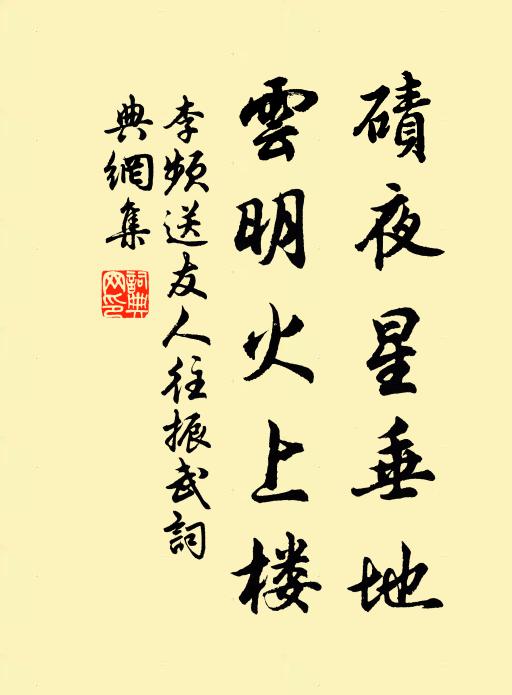 磧夜星垂地
雲明火上楼
李频送友人往振武詞
典網集
詞典網印